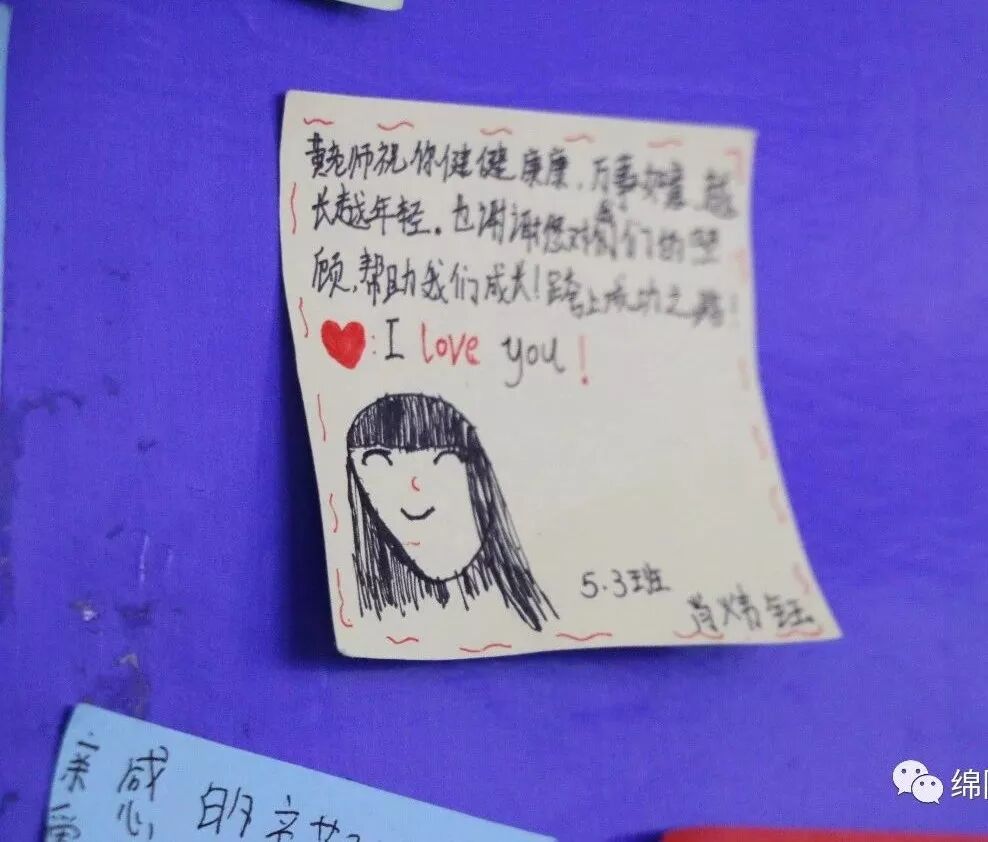 黄老师祝你健健康康，万事如意，越
长越年轻。也谢谢您对我们的照
顾，帮助我们成长！踏上成功之路！
I love you！
5.3班
肖炜钰
亲 感
爱 的
绵阳